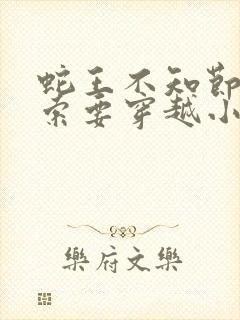 蛇王不知節
索要穿越小
樂府文樂